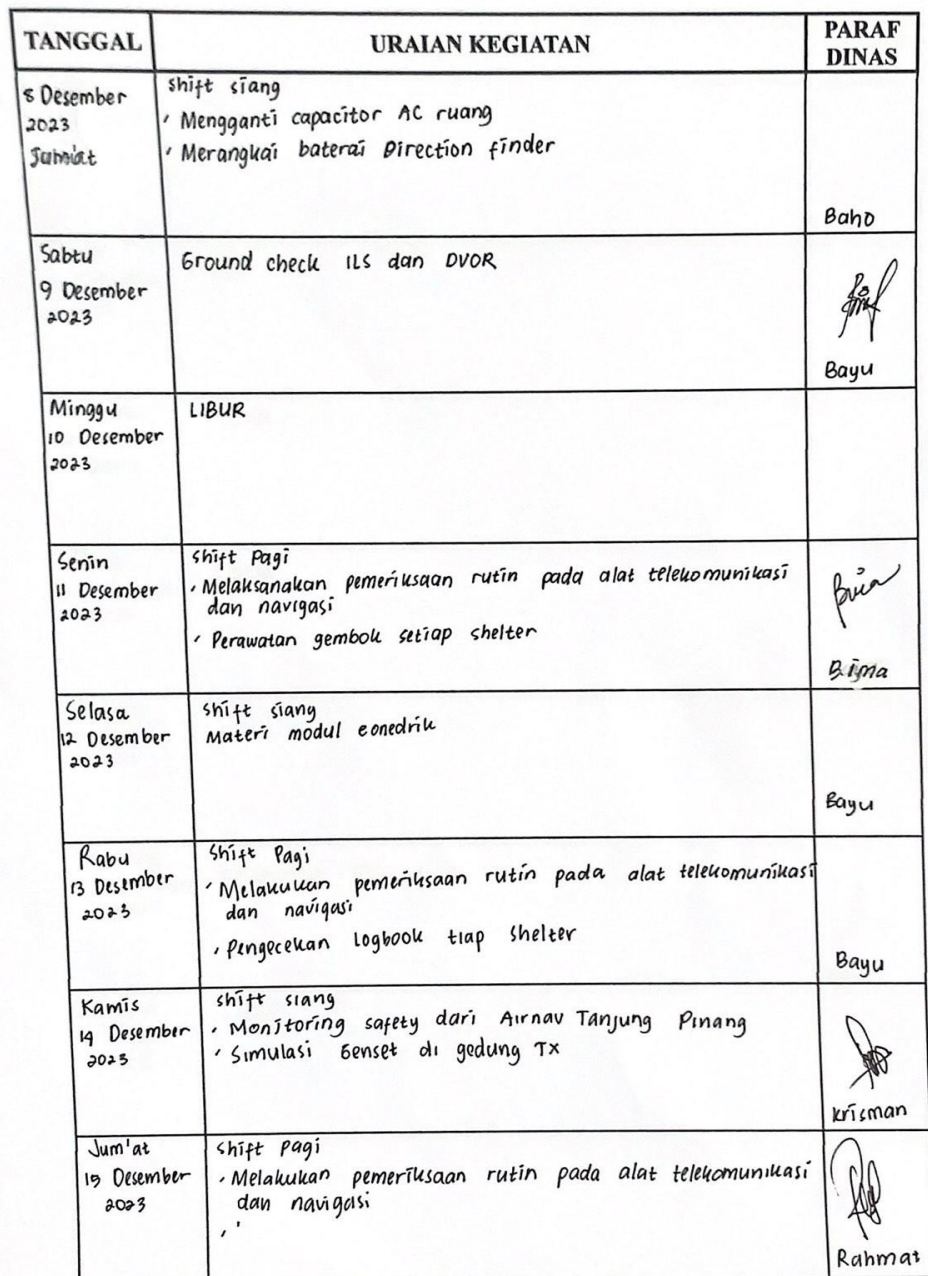 TANGGAL
URAIAN KEGIATAN
PARAF
DINAS
8 Desember
2023
Jum'at
shift siang
Mengganti capacitor AC ruang
Merangkai baterai Direction finder
Baho
Sabtu
9 Desember
2023
Ground check ILS dan DVOR
Bayu
Minggu
10 Desember
2023
LIBUR
Senin
11 Desember
2023
shift Pagi
Melaksanakan pemeriksaan rutin pada alat telekomunikasi
dan navigasi
Perawatan gembok setiap shelter
Bima
Selasa
12 Desember
2023
shift siang
Materi modul eonedrik
Bayu
Rabu
13 Desember
2023
Shift Pagi
Melakukan pemeriksaan rutin pada alat telekomunikasi
dan navigasi
Pengecekan Logbook tiap Shelter
Bayu
Kamis
14 Desember
2023
shift siang
Monitoring safety dari Airnav Tanjung Pinang
Simulasi Genset di gedung Tx
krisman
Jum'at
15 Desember
2023
shift pagi
Melakukan pemeriksaan rutin pada alat telekomunikasi
dan navigasi
Rahmat